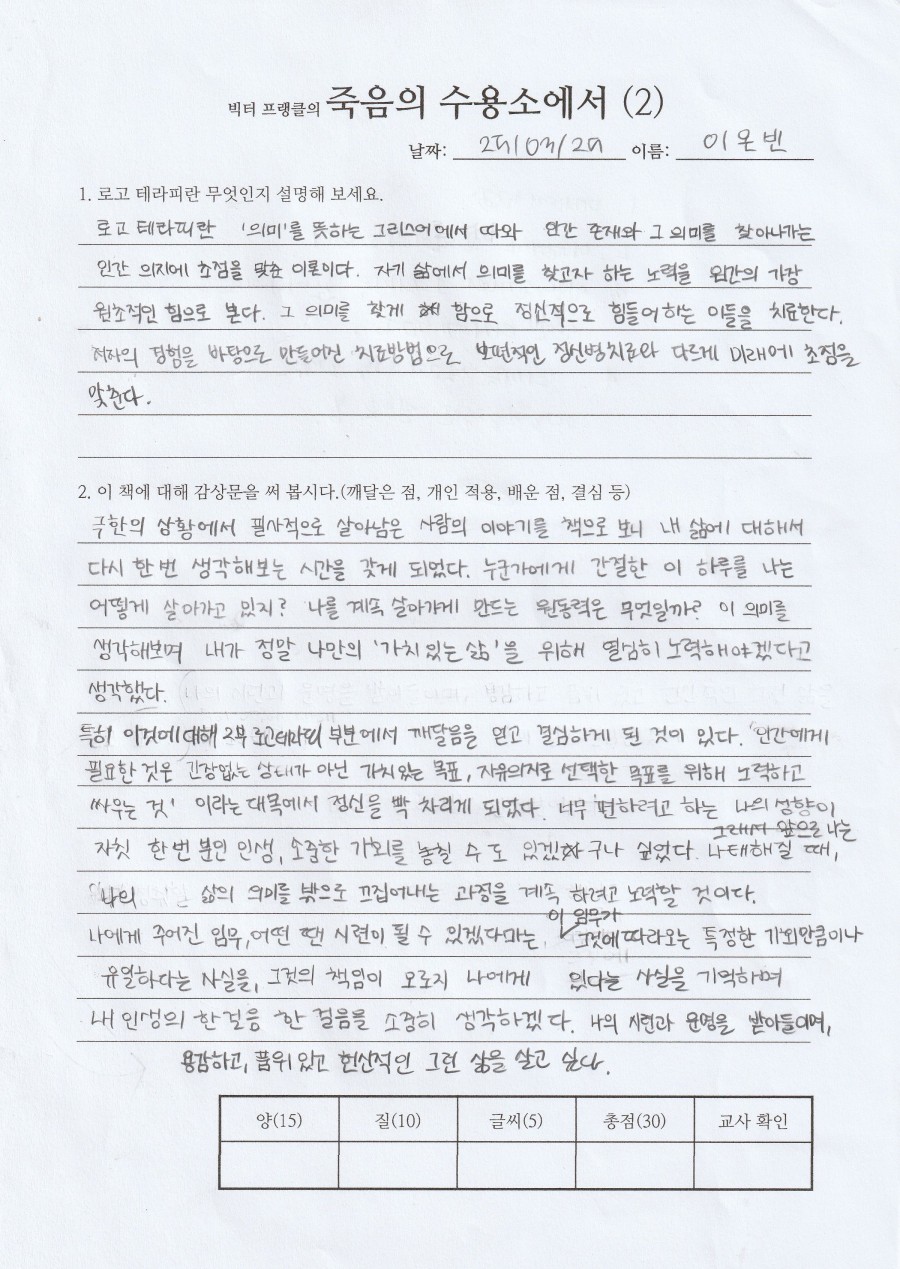 빅터 프랭클의 죽음의 수용소에서 (2)
날짜: 이름: 이온빈
1. 로고 테라피란 무엇인지 설명해 보세요.
로고 테라피란 '의미'를 뜻하는 그리스어에서 따와 인간 존재와 그 의미를 찾아나가는
인간 의지에 초점을 맞춘 이론이다. 자기 삶에서 의미를 찾고자 하는 노력을 인간의 가장
원초적인 힘으로 본다. 그 의미를 찾게 함으로 정신적으로 힘들어하는 이들을 치료한다.
저자의 경험을 바탕으로 만들어진 치료방법으로 보편적인 정신병치료와 다르게 미래에 초점을
맞춘다.
2. 이 책에 대해 감상문을 써 봅시다.(깨달은 점, 개인 적용, 배운 점, 결심 등)
극한의 상황에서 필사적으로 살아남은 사람의 이야기를 책으로 보니 내 삶에 대해서
다시 한 번 생각해보는 시간을 갖게 되었다. 누군가에게 간절한 이 하루를 나는
어떻게 살아가고 있지? 나를 계속 살아가게 만드는 원동력은 무엇일까? 이 의미를
생각해보며 내가 정말 나만의 '가치있는 삶'을 위해 열심히 노력해야겠다고
생각했다.
특히 이것에 대해 2부 로고테라피 부분에서 깨달음을 얻고 결심하게 된 것이 있다. '인간에게
필요한 것은 긴장없는 상태가 아닌 가치있는 목표, 자유의지로 선택한 목표를 위해 노력하고
싸우는 것' 이라는 대목에서 정신을 빡 차리게 되었다. 너무 편하려고 하는 나의 성향이
자칫 한 번 뿐인 인생, 소중한 기회를 놓칠 수 도 있겠구나 싶었다. 그래서 앞으로 나는 나태해질 때,
나의 삶의 의미를 밖으로 끄집어내는 과정을 계속 하려고 노력할 것이다.
나에게 주어진 임무, 어떤 땐 시련이 될 수 있겠다마는, 이 임무가 그것에 따라오는 특정한 기회만큼이나
유일하다는 사실을, 그것의 책임이 오로지 나에게 있다는 사실을 기억하며
내 인생의 한걸음 한 걸음을 소중히 생각하겠다. 나의 시련과 운명을 받아들이며,
용감하고, 품위 있고 헌신적인 그런 삶을 살고 싶다.
양(15) 질(10) 글씨(5) 총점(30) 교사 확인